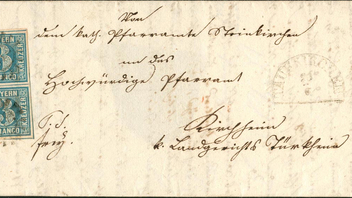 Von
dem kath. Pfarramte Steinkirchen
an das
Hochwürdige Pfarramt
Kirchheim
k. Landgerichts Türkheim
BAYERN
3
KREUZER
FRANCO